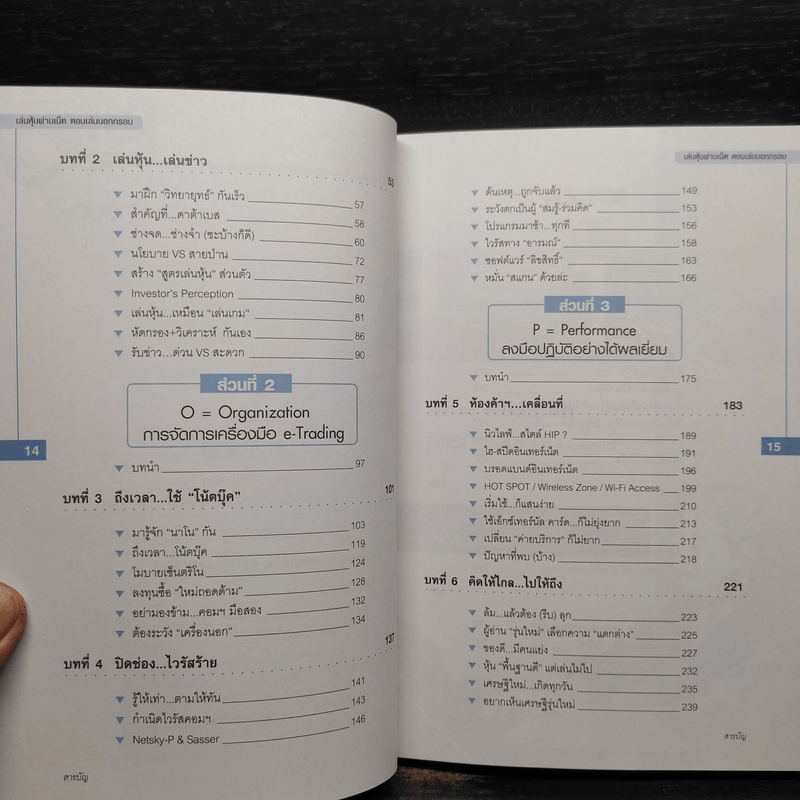 เล่นหุ้นผ่านเน็ต ตอนเล่นนอกกรอบ
บทที่ 2 เล่นหุ้น...เล่นข่าว 53
▼ มาฝึก "วิทยายุทธ์" กันเร็ว 57
▼ สำคัญที่...ดาต้าเบส 58
▼ ช่างจด...ช่างจำ (ซะบ้างก็ดี) 60
▼ นโยบาย VS สายป่าน 72
▼ สร้าง "สูตรเล่นหุ้น" ส่วนตัว 77
▼ Investor's Perception 80
▼ เล่นหุ้น...เหมือน "เล่นเกม" 81
▼ หัดกรอง+วิเคราะห์ กันเอง 86
▼ รับข่าว...ด่วน VS สะดวก 90
ส่วนที่ 2
O = Organization
การจัดการเครื่องมือ e-Trading
14
▼ บทนำ 97
บทที่ 3 ถึงเวลา...ใช้ "โน้ตบุ๊ค" 101
▼ มารู้จัก "นาโน" กัน 103
▼ ถึงเวลา...โน้ตบุ๊ค 119
▼ โมบายเซ็นตริโน 124
▼ ลงทุนซื้อ "ใหม่ถอดด้าม" 128
▼ อย่ามองข้าม...คอมฯ มือสอง 132
▼ ต้องระวัง "เครื่องนอก" 134
บทที่ 4 ปิดช่อง...ไวรัสร้าย 137
▼ รู้ให้เท่า...ตามให้ทัน 141
▼ กำเนิดไวรัสคอมฯ 143
▼ Netsky-P & Sasser 146
สารบัญ
เล่นหุ้นผ่านเน็ต ตอนเล่นนอกกรอบ
▼ ต้นเหตุ...ถูกจับแล้ว 149
▼ ระวังตกเป็นผู้ "สมรู้-ร่วมคิด" 153
▼ โปรแกรมมาซ้ำ...ทุกที 156
▼ ไวรัสทาง "อารมณ์" 158
▼ ซอฟต์แวร์ "ลิขสิทธิ์" 163
▼ หมั่น "สแกน" ด้วยล่ะ 166
ส่วนที่ 3
P = Performance
ลงมือปฏิบัติอย่างได้ผลเยี่ยม
▼ บทนำ 175
บทที่ 5 ห้องค้าฯ...เคลื่อนที่ 183
▼ นิวไลฟ์...สไตล์ HIP ? 189
▼ ไฮ-สปีดอินเทอร์เน็ต 191
15
▼ บรอดแบนด์อินเทอร์เน็ต 196
▼ HOT SPOT / Wireless Zone / Wi-Fi Access 199
▼ เริ่มใช้...ก็แสนง่าย 210
▼ ใช้เอ็กซ์เทอร์นัล คาร์ด...ก็ไม่ยุ่งยาก 213
▼ เปลี่ยน "ค่ายบริการ" ก็ไม่ยาก 217
▼ ปัญหาที่พบ (บ้าง) 218
บทที่ 6 คิดให้ไกล...ไปให้ถึง 221
▼ ล้ม...แล้วต้อง (รีบ) ลุก 223
▼ ผู้อ่าน "รุ่นใหม่" เลือกความ "แตกต่าง" 225
▼ ของดี...มีคนแย่ง 227
▼ หุ้น "พื้นฐานดี" แต่เล่นไม่ไป 232
▼ เศรษฐีใหม่...เกิดทุกวัน 235
▼ อยากเห็นเศรษฐีรุ่นใหม่ 239
สารบัญ